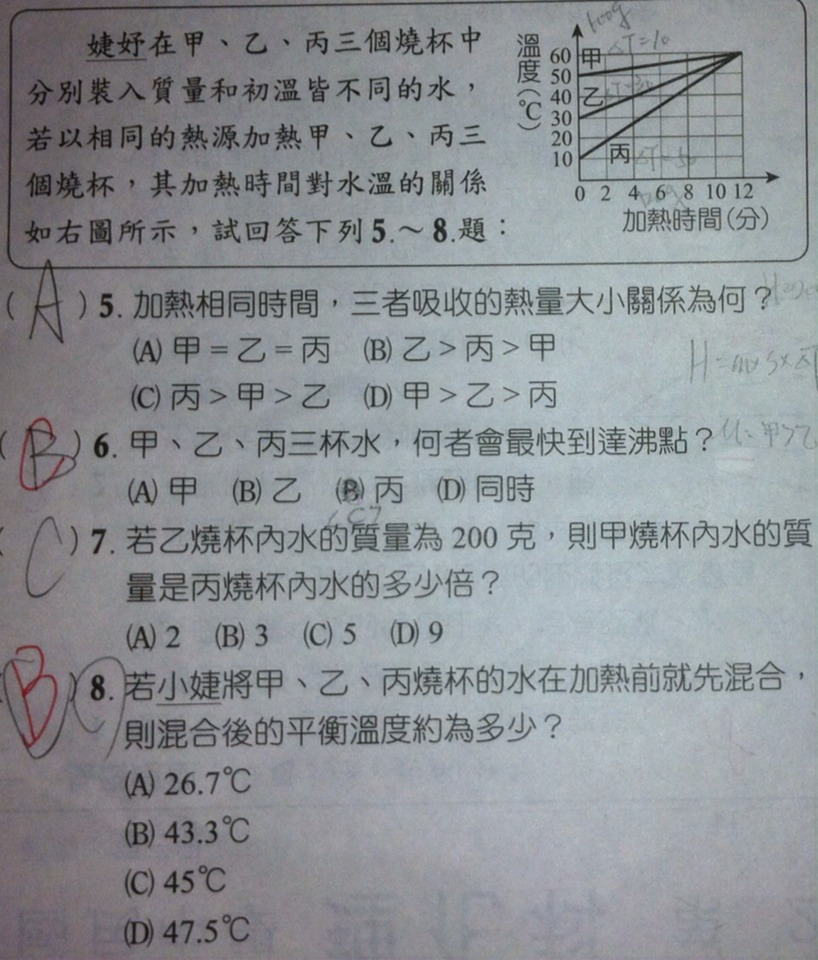 婕妤在甲、乙、丙三個燒杯中
分別裝入質量和初溫皆不同的水，
若以相同的熱源加熱甲、乙、丙三
個燒杯，其加熱時間對水溫的關係
如右圖所示，試回答下列5.～8.題：
100g
ΔT=10
溫度(℃)
60 甲
50
40 乙
30
20
10 丙
ΔT=50
0 2 4 6 8 10 12
加熱時間(分)
(A) 5. 加熱相同時間，三者吸收的熱量大小關係為何？
(A) 甲=乙=丙 (B) 乙>丙>甲
(C) 丙>甲>乙 (D) 甲>乙>丙
H=m×S×ΔT
(B) 6. 甲、乙、丙三杯水，何者會最快到達沸點？
(A) 甲 (B) 乙 (B) 丙 (D) 同時
(C)
(C) 7. 若乙燒杯內水的質量為 200 克，則甲燒杯內水的質
量是丙燒杯內水的多少倍？
(A) 2 (B) 3 (C) 5 (D) 9
(B) C 8. 若小婕將甲、乙、丙燒杯的水在加熱前就先混合，
則混合後的平衡溫度約為多少？
(A) 26.7℃
(B) 43.3℃
(C) 45℃
(D) 47.5℃